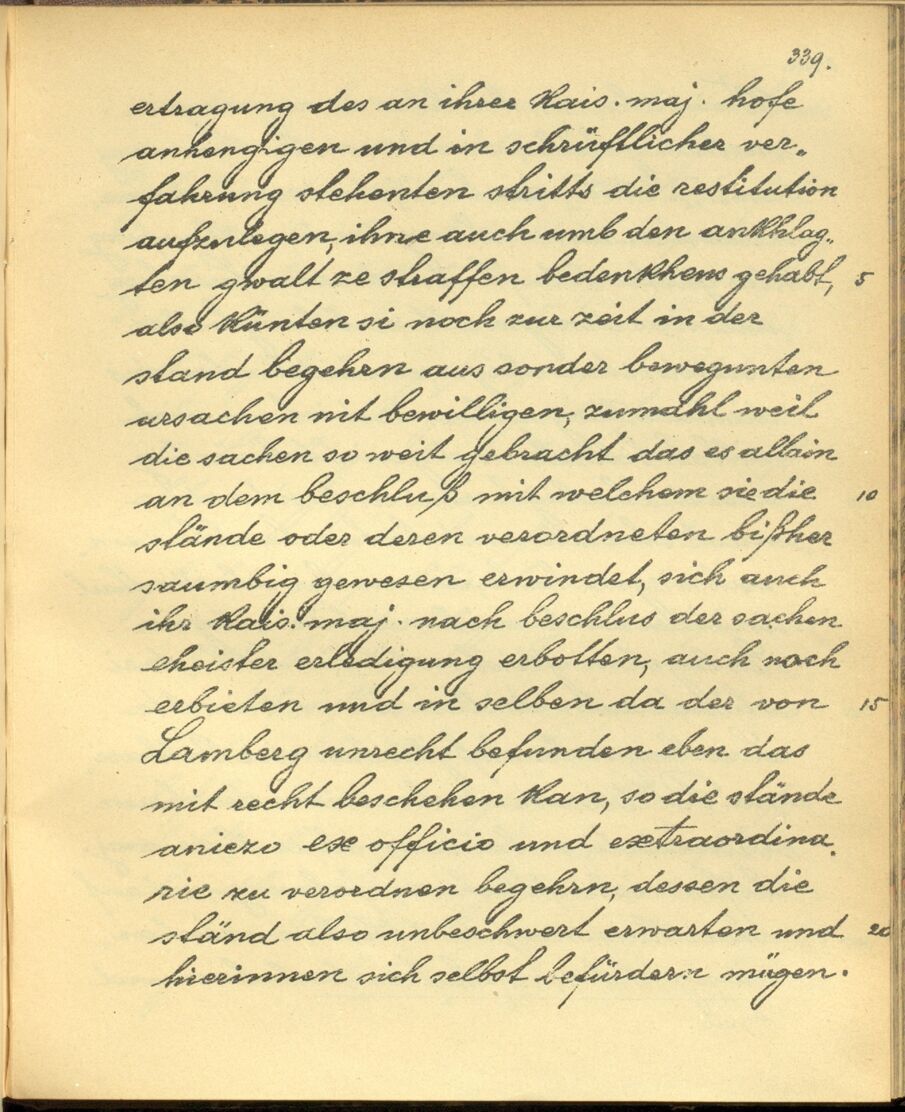 339.
ertragung des an ihrer Kais. maj. hofe
anhengigen und in schrüftlicher ver„
fahrung stehenten stritts die restitution
aufzulegen, ihne auch umb den ankhlag„
ten gwalt ze straffen bedenkhens gehabt, 5
also künten si noch zur zeit in der
stand begehrn aus sonder bewegunten
ursachen nit bewilligen, zumahl weil
die sachen so weit gebracht das es allain
an dem beschluß mit welchem sie die 10
stände oder deren verordneten bißher
saumbig gewesen erwindet, sich auch
ihr Kais. maj. nach beschlus der sachen
eheister erledigung erbotten, auch noch
erbieten und in selben da der von 15
Lamberg unrecht befunden eben das
mit recht beschehen kan, so die stände
aniezo ex officio und extraordina„
rie zu verordnen begehrn, dessen die
ständ also unbeschwert erwarten und 20
hierinnen sich selbst befürdern mügen.